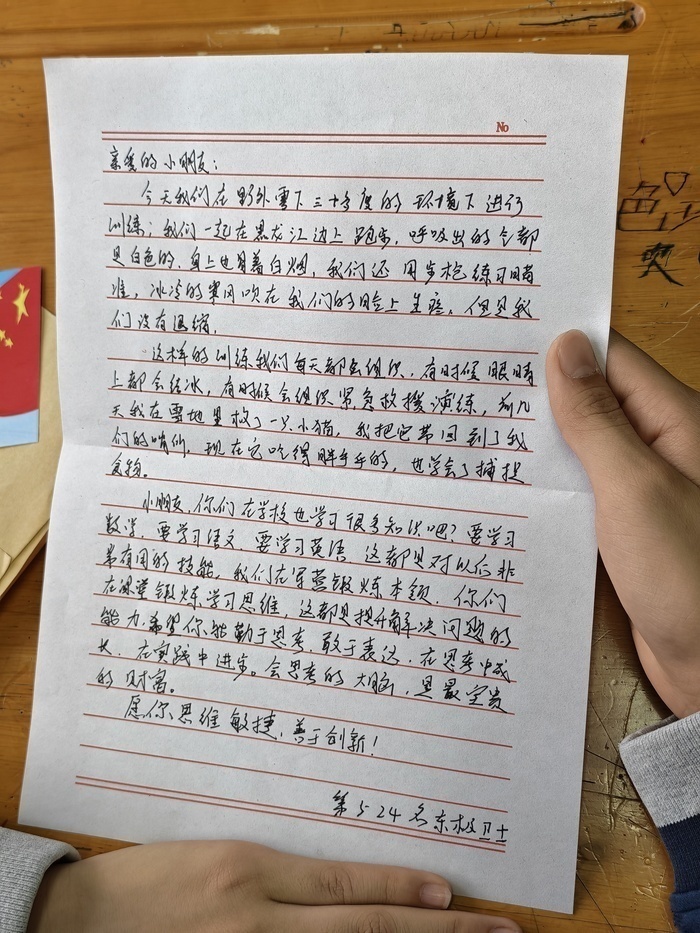 No
亲爱的小朋友：
今天我们在野外零下三十多度的环境下进行
训练；我们一起在黑龙江边上跑步，呼吸出的气都
是白色的，身上也冒着白烟，我们还用步枪练习瞄
准，冰冷的寒风吹在我们的脸上生疼，但是我
们没有退缩。
这样的训练我们每天都会组织，有时候眼睛
上都会结冰，有时候会组织紧急救援演练，前几
天我在雪地里救了一只小猫，我把它带回到了我
们的哨所，现在它吃得胖乎乎的，也学会了捕捉
食物。
小朋友，你们在学校也学习很多知识吧？要学习
数学，要学习语文，要学习英语，这都是对以后非
常有用的技能，我们在军营锻炼本领，你们
在课堂锻炼学习思维，这都是提升解决问题的
能力，希望你能勤于思考，敢于表达，在思考中成
长，在实践中进步。会思考的大脑，是最宝贵
的财富。
愿你思维敏捷，善于创新！
第524名东极卫士
色
爽